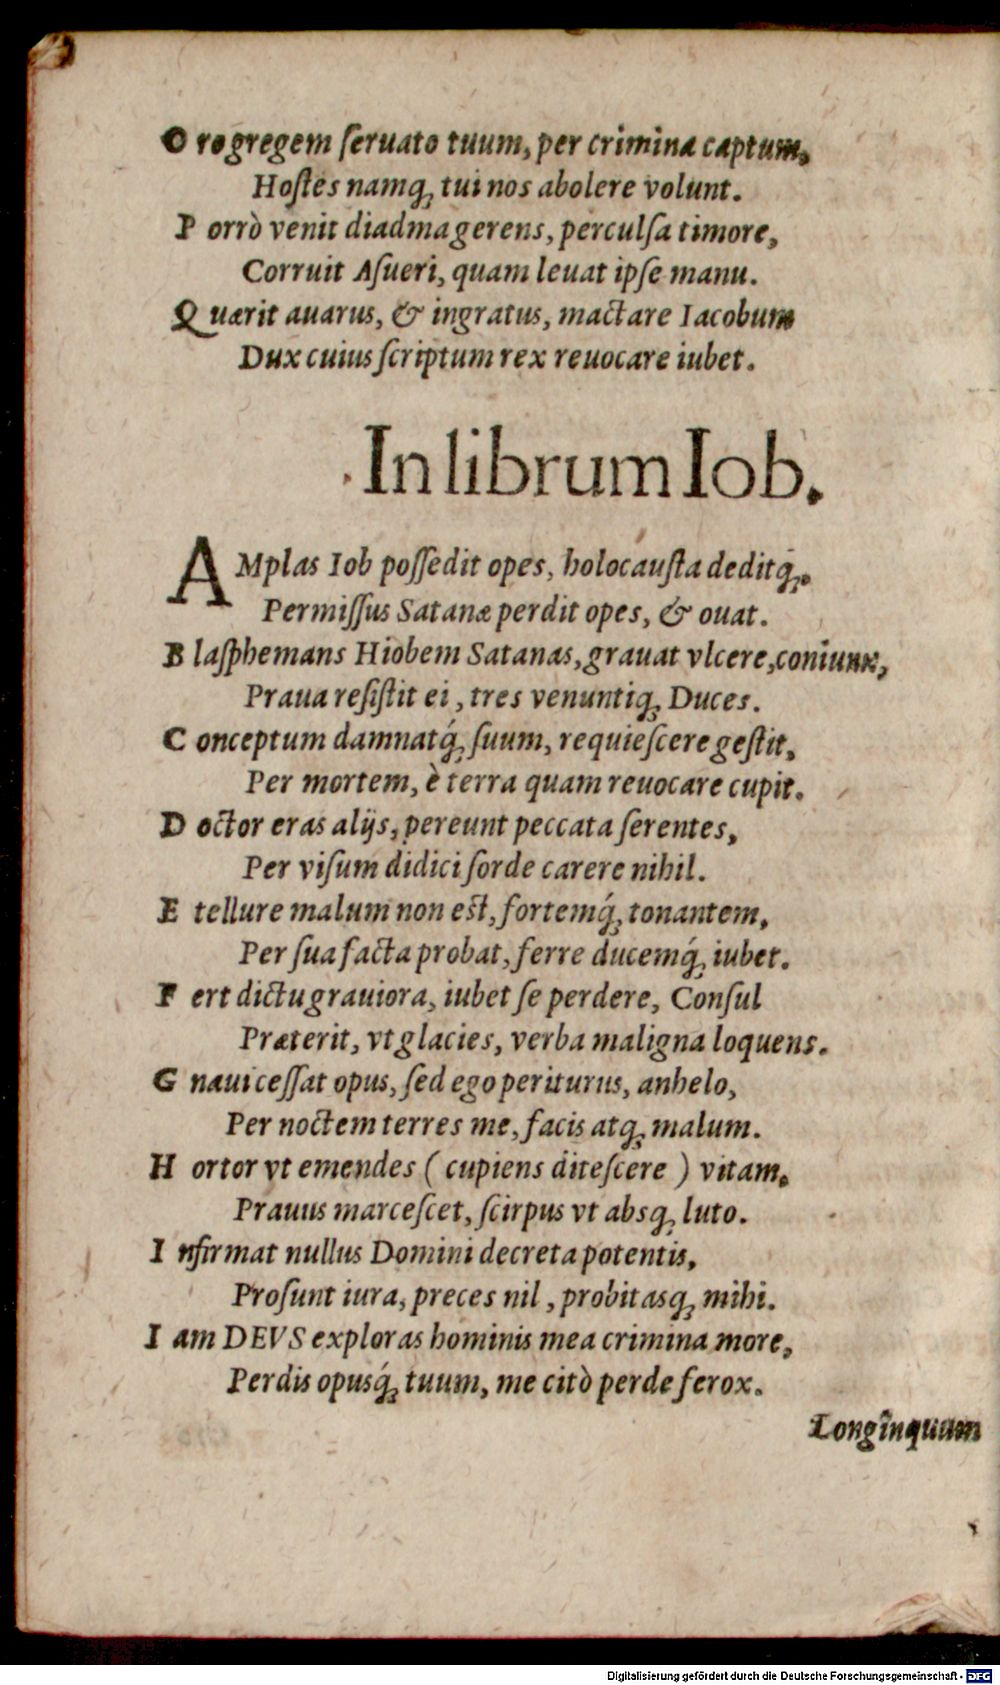 O ro gregem ſeruato tuum, per crimina captum,
Hoſtes namq́; tui nos abolere volunt.
P orrò venit diadma gerens, perculſa timore,
Corruit Aſueri, quam leuat ipſe manu.
Q uærit auarus, & ingratus, mactare Iacobum
Dux cuius ſcriptum rex reuocare iubet.
In librum Iob.
AMplas Iob poſſedit opes, holocauſta deditq́;.
Permiſſus Satanæ perdit opes, & ouat.
B laſphemans Hiobem Satanas, grauat vlcere, coniunx,
Praua reſiſtit ei, tres venuntiq; Duces.
C onceptum damnatq́; ſuum, requieſcere geſtit,
Per mortem, è terra quam reuocare cupit.
D octor eras alijs, pereunt peccata ſerentes,
Per viſum didici ſorde carere nihil.
E tellure malum non eſt, fortemq́; tonantem,
Per ſua facta probat, ferre ducemq́; iubet.
F ert dictu grauiora, iubet ſe perdere, Conſul
Præterit, vt glacies, verba maligna loquens.
G naui ceſſat opus, ſed ego periturus, anhelo,
Per noctem terres me, facis atq; malum.
H ortor vt emendes ( cupiens diteſcere ) vitam,
Prauus marceſcet, ſcirpus vt absq; luto.
I nfirmat nullus Domini decreta potentis,
Proſunt iura, preces nil, probitasq; mihi.
I am DEVS exploras hominis mea crimina more,
Perdis opusq́; tuum, me citò perde ferox.
Longinquum
Digitalisierung gefördert durch die Deutsche Forschungsgemeinschaft - DFG